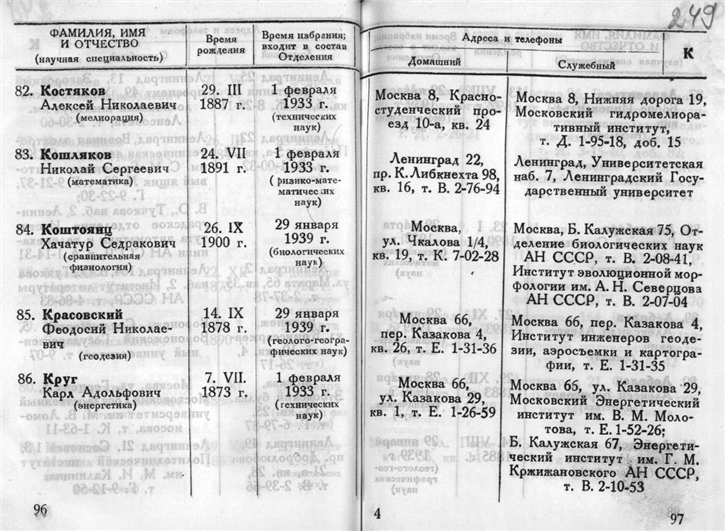 249
ФАМИЛИЯ, ИМЯ
И ОТЧЕСТВО
(научная специальность)
Время
рождения
Время избрания;
входит в состав
Отделения
82. Костяков
Алексей Николаевич
(мелиорация)
29. III
1887 г.
1 февраля
1933 г.
(технических
наук)
83. Кошляков
Николай Сергеевич
(математика)
24. VII
1891 г.
1 февраля
1933 г.
(физико-мате-
матических
наук)
84. Коштоянц
Хачатур Седракович
(сравнительная
физиология)
26. IX
1900 г.
29 января
1939 г.
(биологических
наук)
85. Красовский
Феодосий Николае-
вич
(геодезия)
14. IX
1878 г.
29 января
1939 г.
(геолого-геогра-
фических наук)
86. Круг
Карл Адольфович
(энергетика)
7. VII.
1873 г.
1 февраля
1933 г.
(технических
наук)
96
Адреса и телефоны
К
Домашний
Служебный
Москва 8, Красно-
студенческий про-
езд 10-а, кв. 24
Москва 8, Нижняя дорога 19,
Московский гидромелиора-
тивный институт,
т. Д. 1-95-18, доб. 15
Ленинград 22,
пр. К.Либкнехта 98,
кв. 16, т. В. 2-76-94
Ленинград, Университетская
наб. 7, Ленинградский Госу-
дарственный университет
Москва,
ул. Чкалова 1/4,
кв. 19, т. К. 7-02-28
Москва, Б. Калужская 75, От-
деление биологических наук
АН СССР, т. В. 2-08-41,
Институт эволюционной мор-
фологии им. А. Н. Северцова
АН СССР, т. В. 2-07-04
Москва 66,
пер. Казакова 4,
кв. 26, т. Е. 1-31-36
Москва 66, пер. Казакова 4,
Институт инженеров геоде-
зии, аэросъемки и картогра-
фии, т. Е. 1-31-35
Москва 66,
ул. Казакова 29,
кв. 1, т. Е. 1-26-59
Москва 66, ул. Казакова 29,
Московский Энергетический
институт им. В. М. Моло-
това, т. Е. 1-52-26;
Б. Калужская 67, Энергети-
ческий институт им. Г. М.
Кржижановского АН СССР,
т. В. 2-10-53
4
97